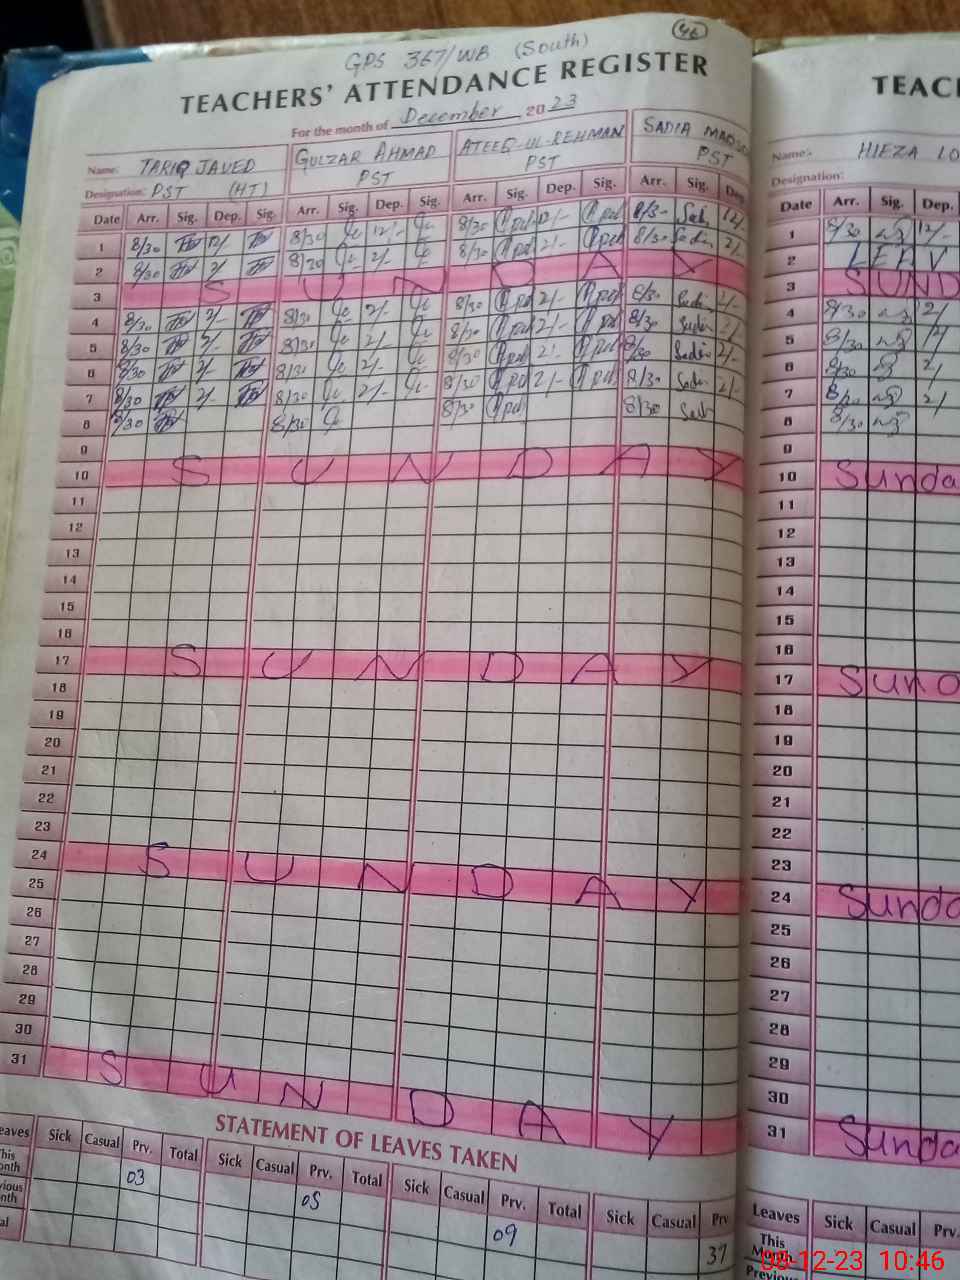 46
GPS 367/WB (South)
TEACHERS' ATTENDANCE REGISTER
For the month of December 2023
Name: TARIQ JAVED GULZAR AHMAD ATEEQ-UL-REHMAN SADIA
Designation: PST (HT) PST PST PST
Date Arr. Sig. Dep. Sig. Arr. Sig. Dep. Sig. Arr. Sig. Dep. Sig. Arr. Sig. Dep.
1 8/30 12/- 8/30 12/- 8/30 12/- 8/3- 12/-
2 8/30 2/- 8/30 2/- 8/30 2/- 8/30 Sadia 2/-
3 S U N D A Y
4 8/30 2/- 8/30 2/- 8/30 2/- 8/30 Sadia 2/-
5 8/30 2/- 8/30 2/- 8/30 2/- 8/30 Sadia 2/-
6 8/30 2/- 8/30 2/- 8/30 2/- 8/30 Sadia 2/-
7 8/30 2/- 8/30 2/- 8/30 2/- 8/30 Sadia 2/-
8 8/30 8/30 8/30 8/30
9
10 S U N D A Y
11
12
13
14
15
16
17 S U N D A Y
18
19
20
21
22
23
24 S U N D A Y
25
26
27
28
29
30
31 S U N D A Y
STATEMENT OF LEAVES TAKEN
eaves Sick Casual Prv. Total Sick Casual Prv. Total Sick Casual Prv. Total Sick Casual Prv
This onth 03 05 09 37
vious nth
al
TEAC
Name:-
Designation:
Date Arr. Sig. Dep.
1 8/30 12/-
2 LEAV
3 SUND
4 8/30 2/
5 8/30
6 8/30 2/
7 8/30 2/
8 8/30
9
10 Sunda
11
12
13
14
15
16
17 Sund
18
19
20
21
22
23
24 Sunda
25
26
27
28
29
30
31 Sunda
Leaves Sick Casual Prv.
This Month
Previous
08-12-23 10:46